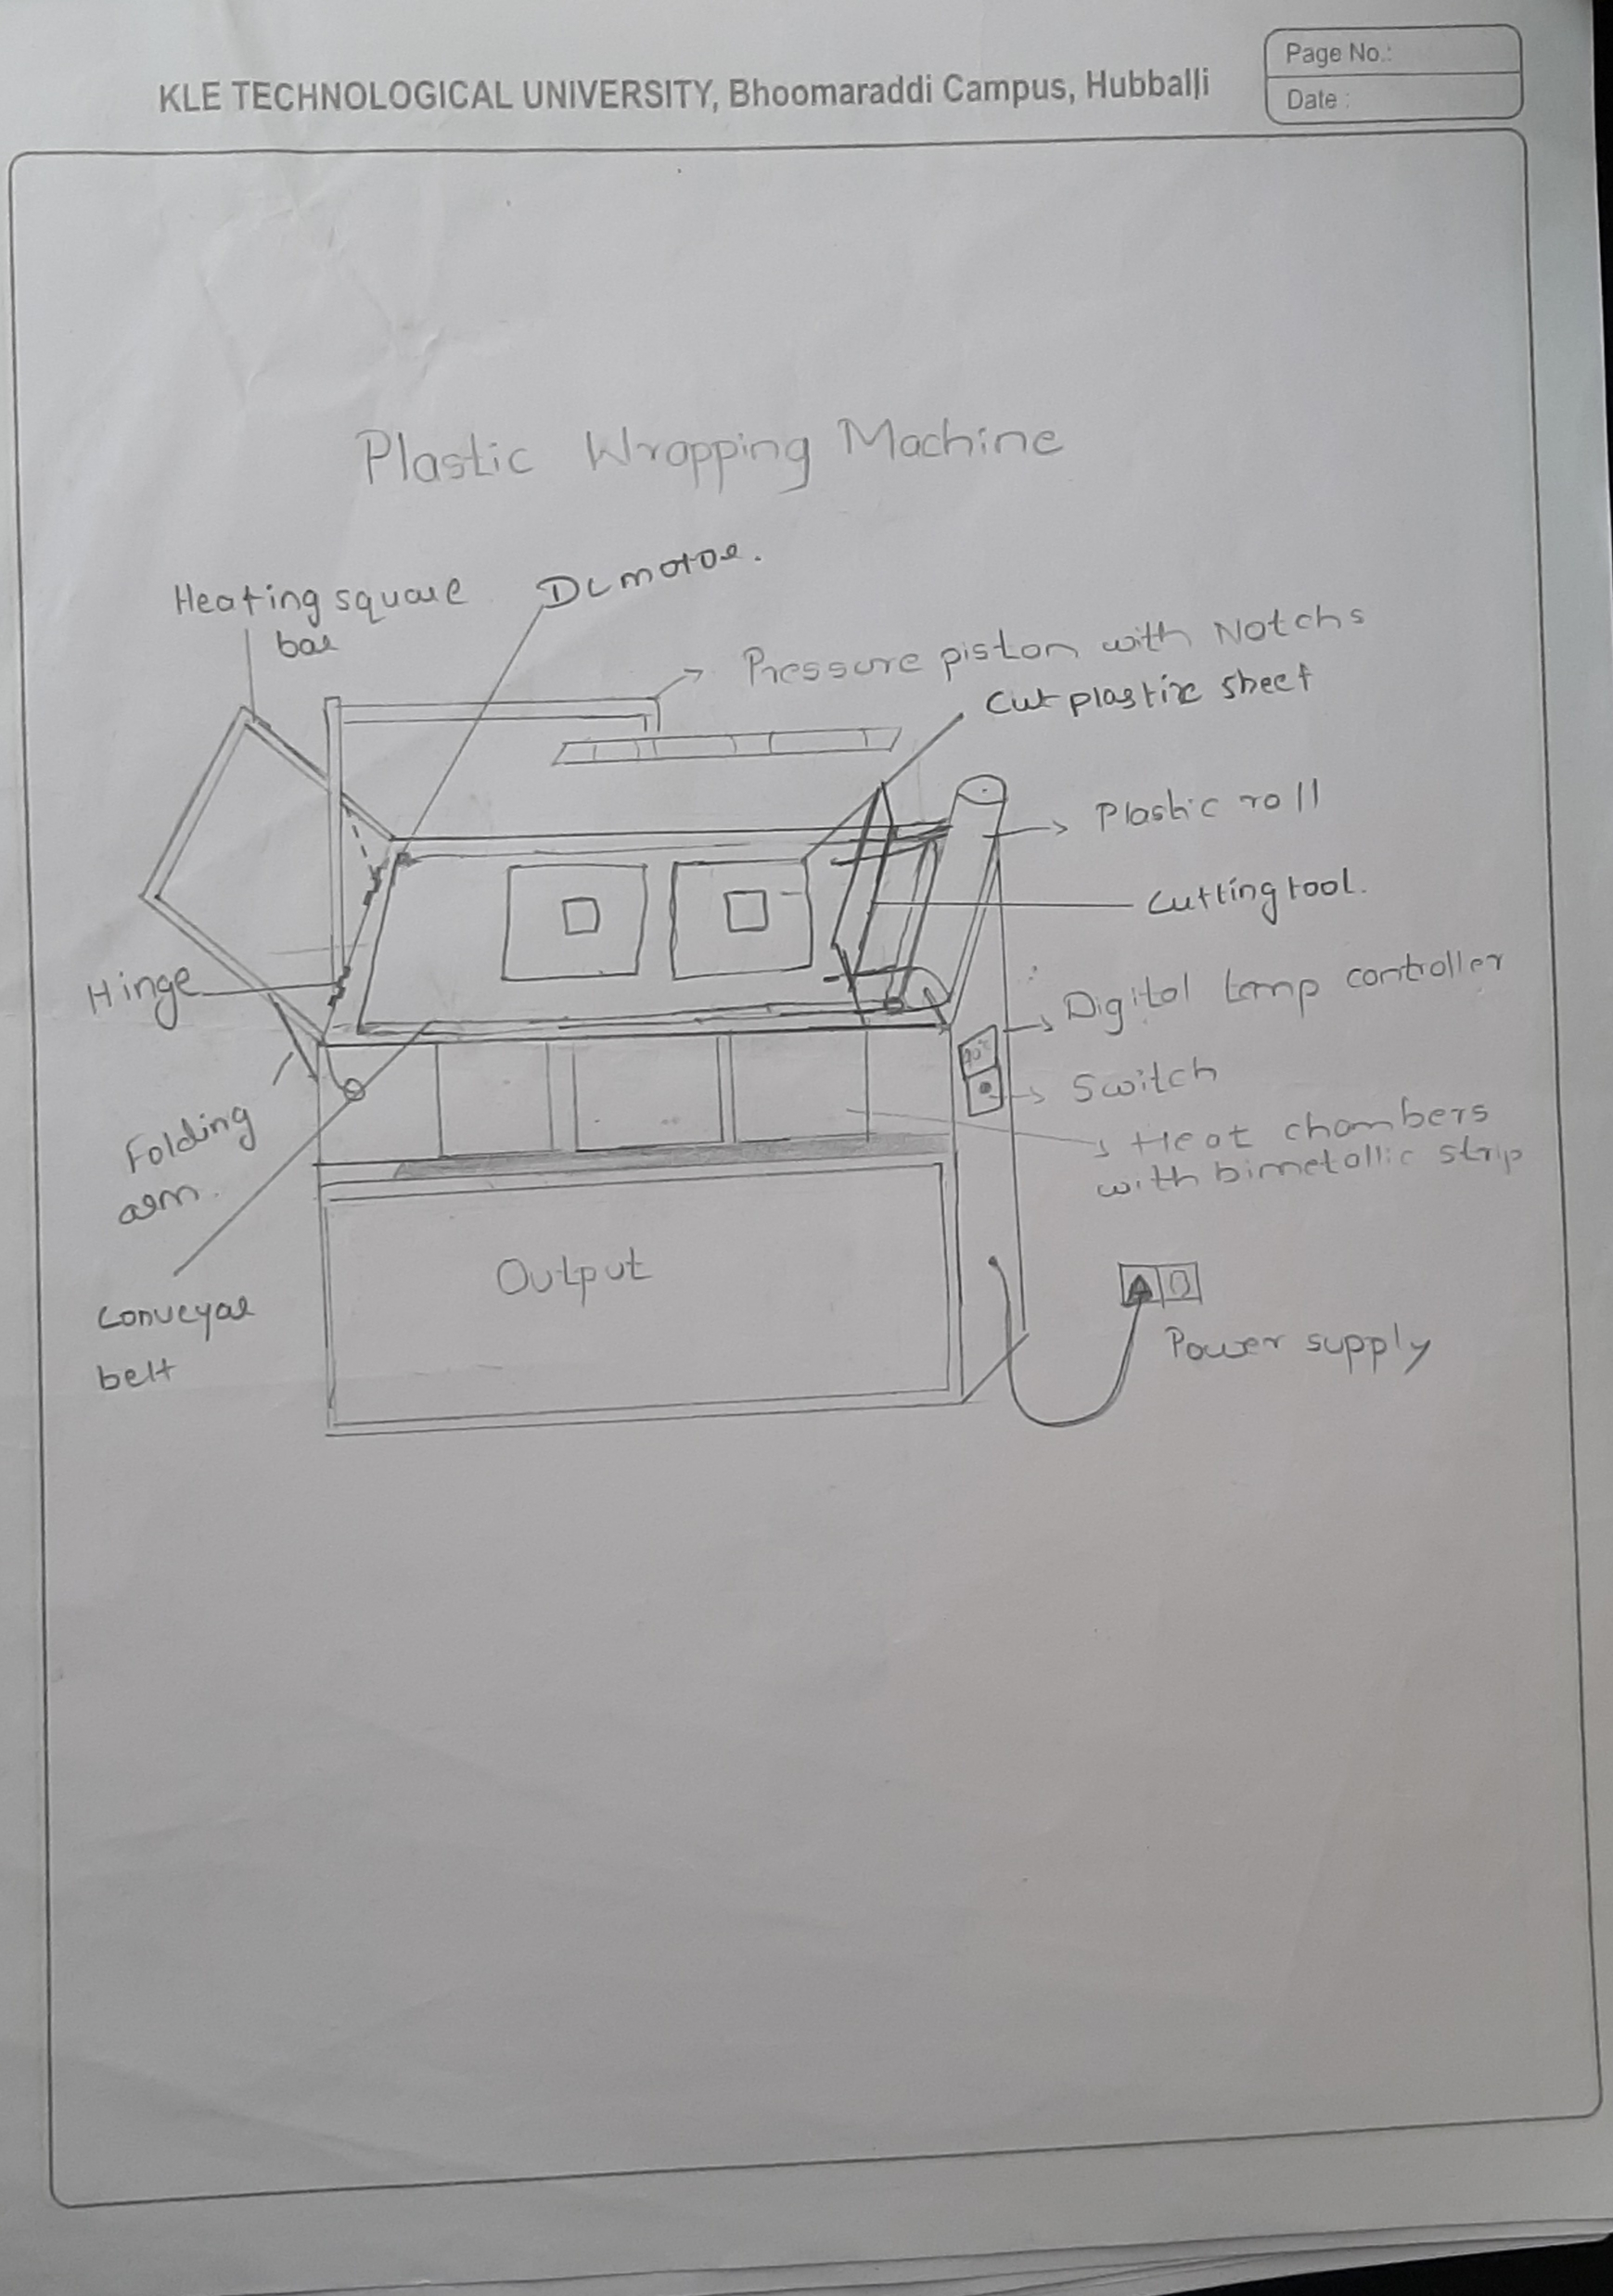 KLE TECHNOLOGICAL UNIVERSITY, Bhoomaraddi Campus, Hubballi
Page No.:
Date :
Plastic Wrapping Machine
Heating square
bar
DC motor.
Pressure piston with Notchs
Cut plastic sheet
Plastic roll
Cutting tool.
Hinge
Digital temp controller
Switch
Heat chambers
with bimetallic strip
Folding
arm.
Conveyar
belt
Output
Power supply